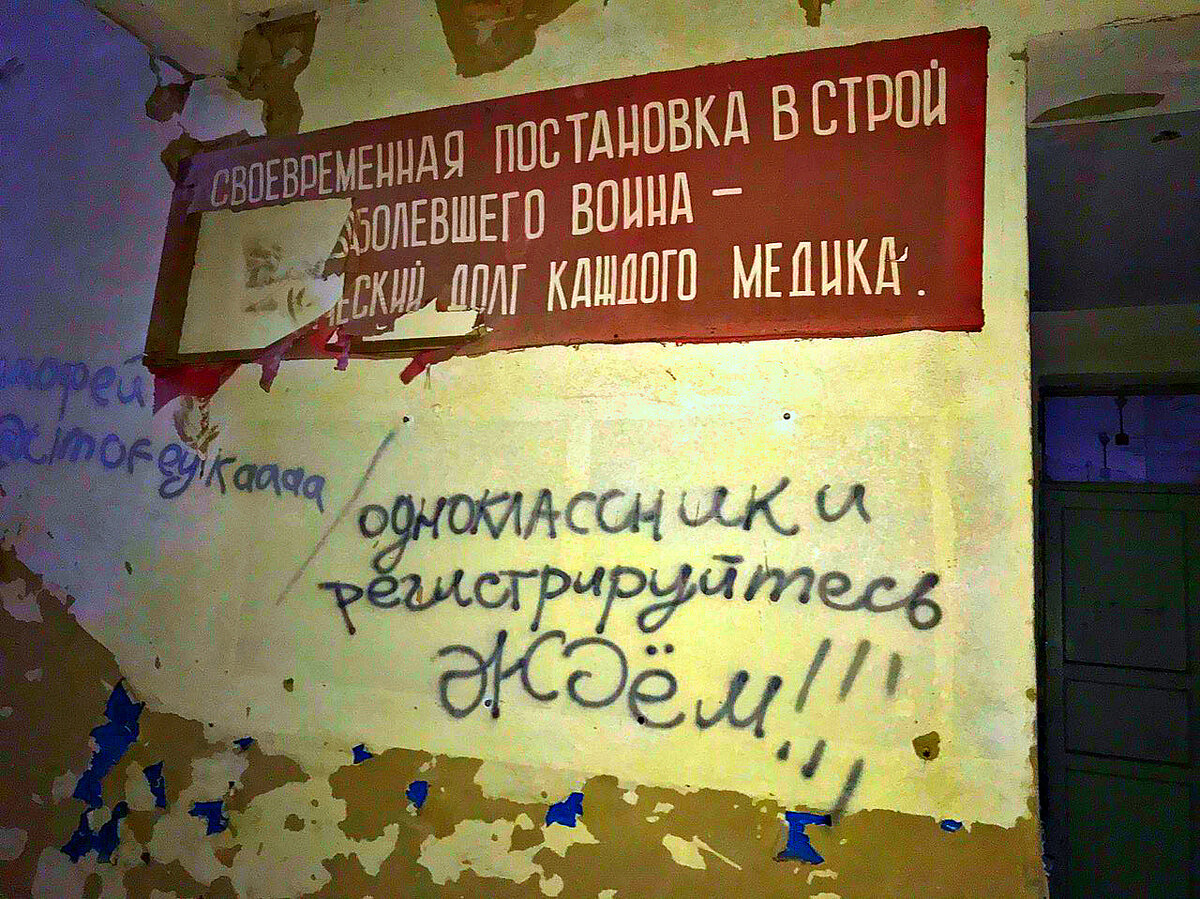 СВОЕВРЕМЕННАЯ ПОСТАНОВКА В СТРОЙ
ЗАБОЛЕВШЕГО ВОИНА –
ЧЕСКИЙ ДОЛГ КАЖДОГО МЕДИКА.
одноклассники
регистрируйтесь
ждём!!!